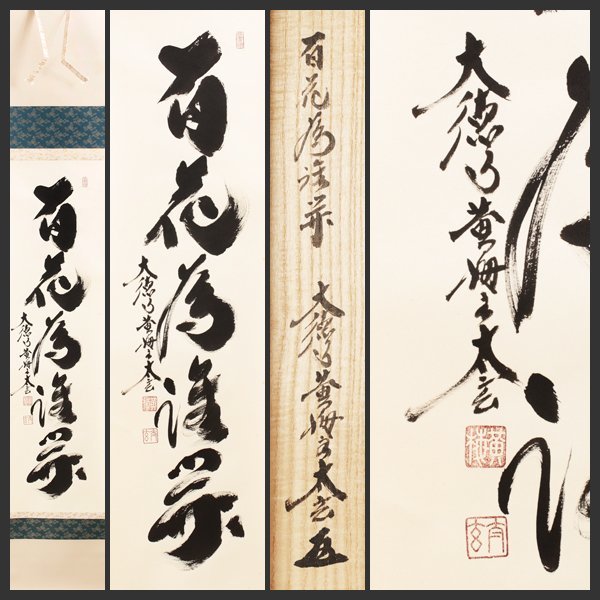 百花為誰開
大徳寺黄梅主太玄
百花為誰開
大徳寺黄梅主太玄
百花為誰開
大徳寺黄梅主太玄
大徳寺黄梅主太玄
太玄